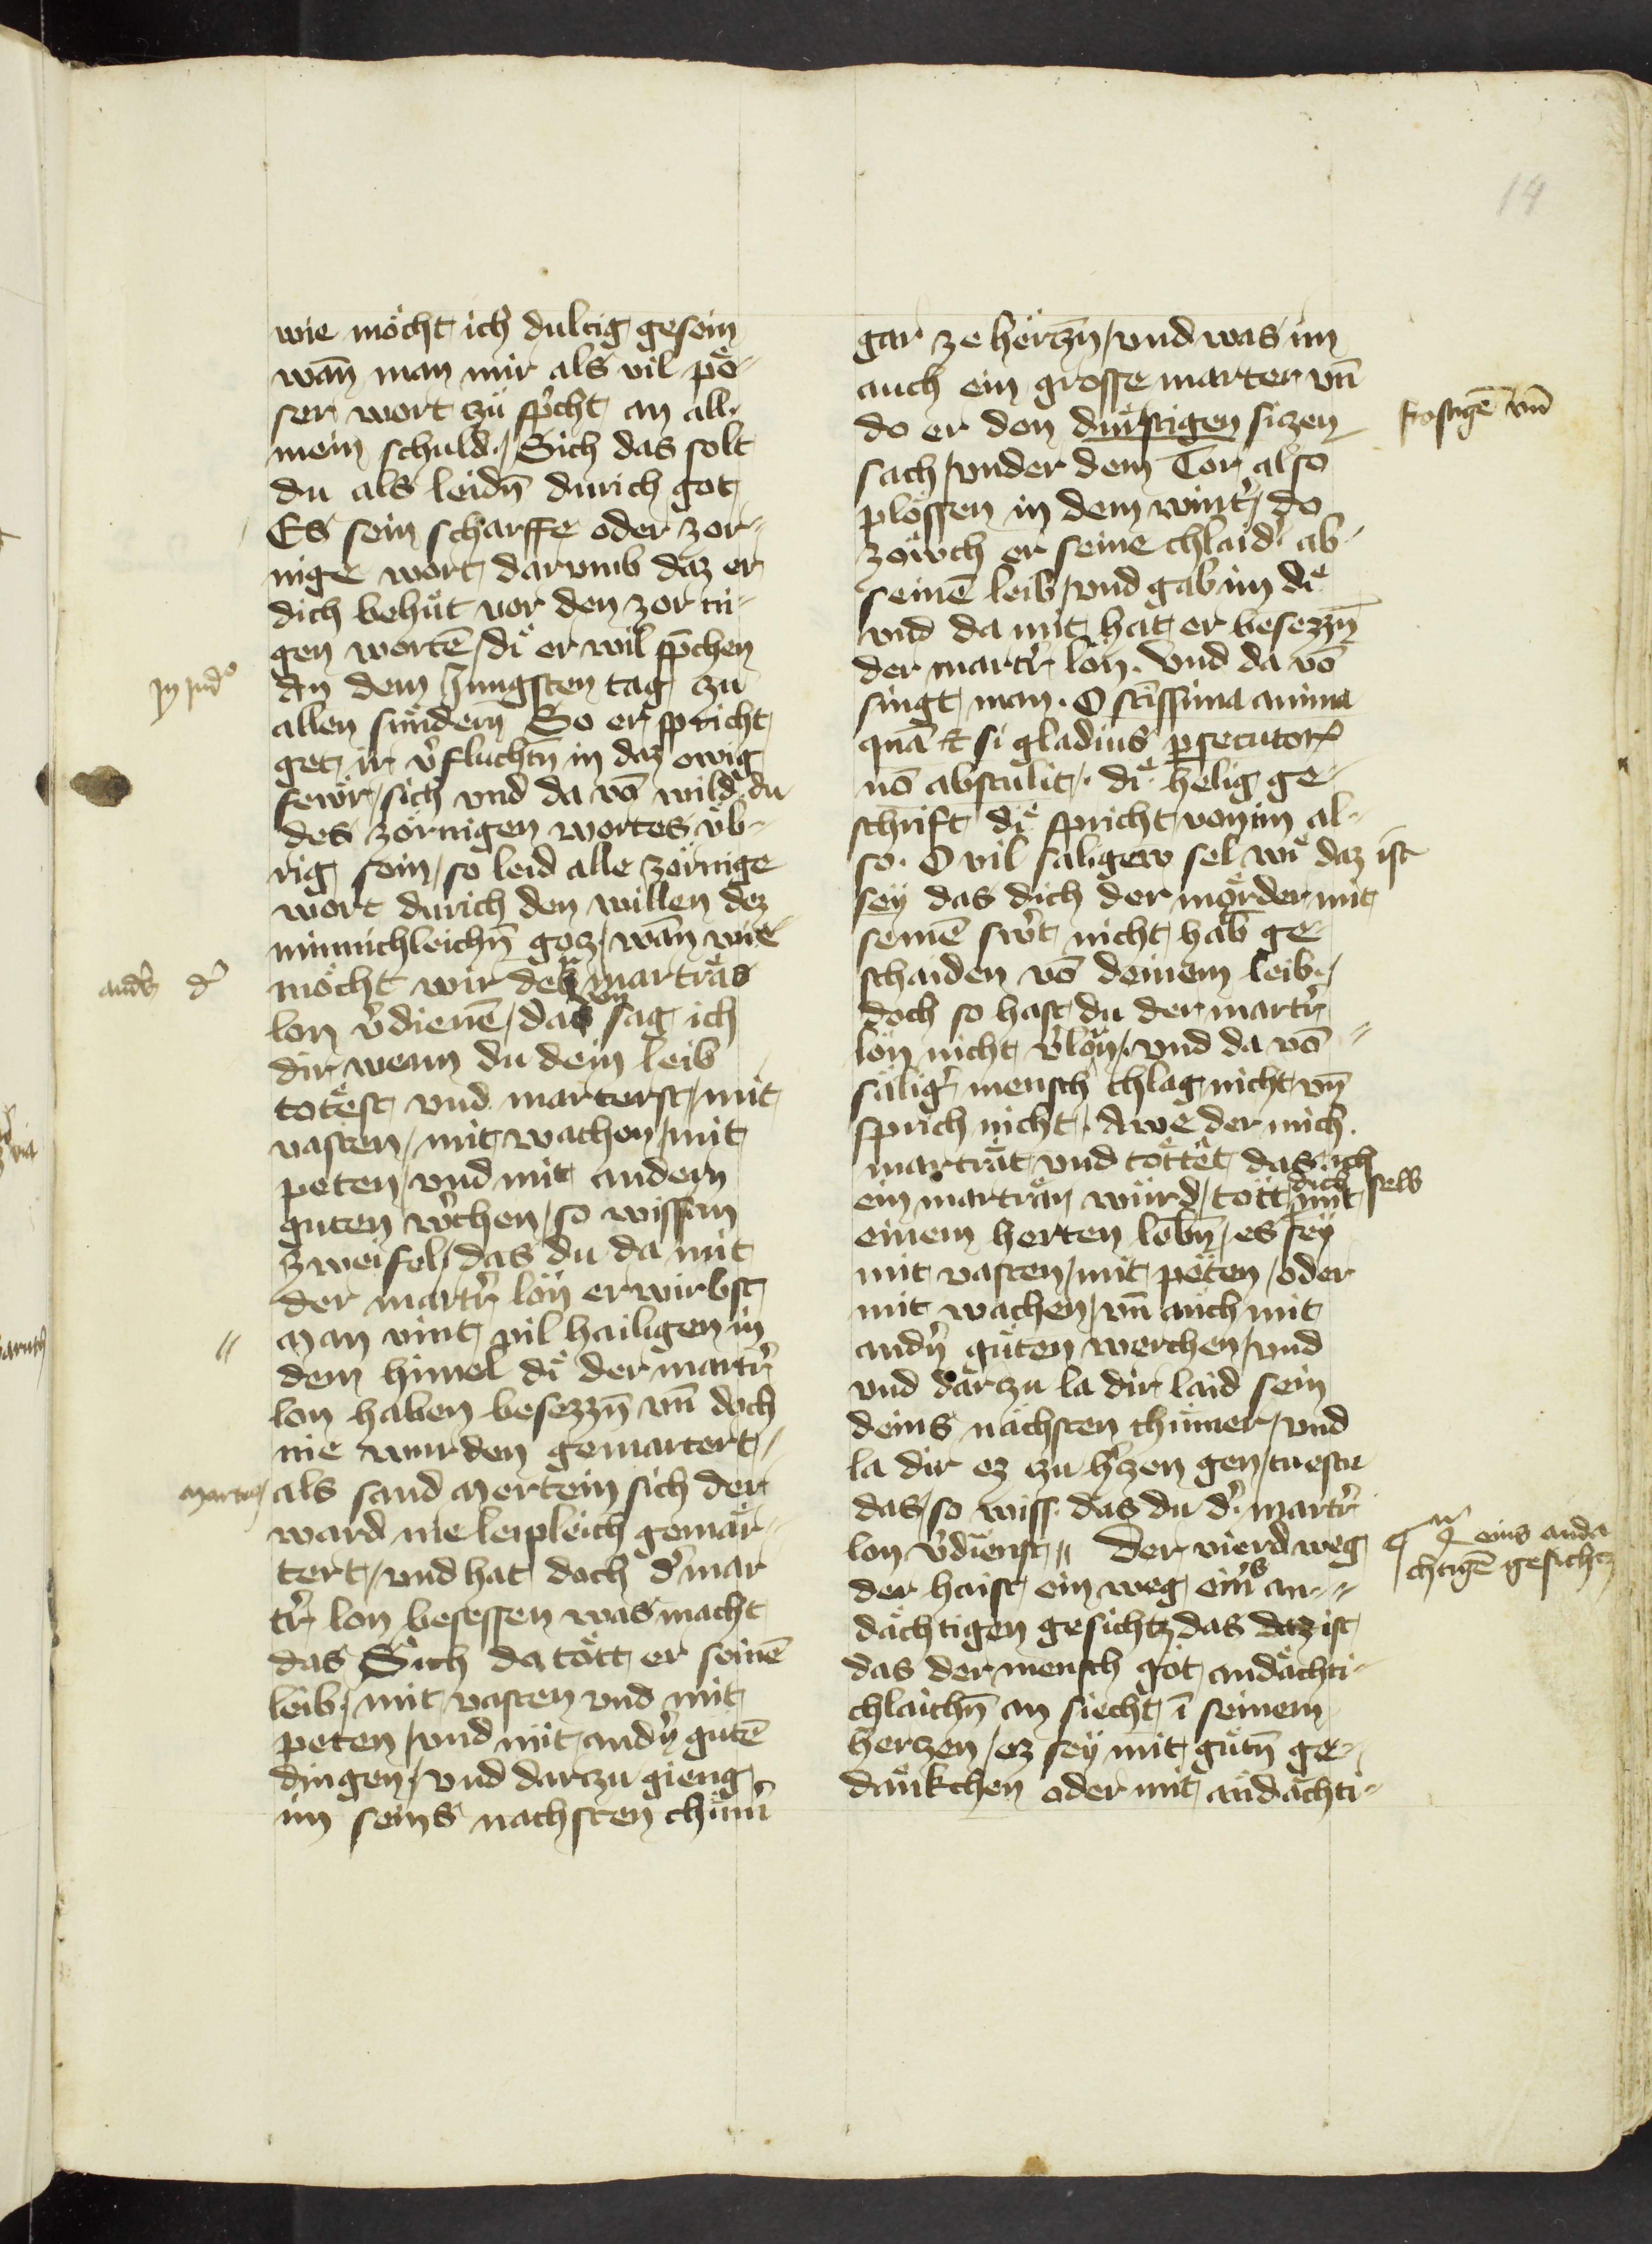 14
wie möcht ich dultig gesein
wan̄ man mir als vil pö-
ser wort zu sp̄cht an all
mein schuld / Sich das solt
du als leidn̄ durich got
Es sein scharffe oder zor-
nige wort darvmb daz er
dich behüt vor den zorni-
gen wortē / di er wil sp̄chen
An dem Jungsten tag zu
allen sündern̄ So er spricht
get ir v̓fluchtn̄ in daz ewig
fewr / sich vnd da vō wild du
des zörnigen wortes üb-
rig sein / so leid alle zörnige
wort durich den willen dez
minnichleichn̄ gotz / wan̄ wie
möcht wir der marträr
lon v̓dienē / das sag ich
dir wenn du dein leib
totest vnd marterst / mit
vasten / mit wachen / mit
peten / vnd mit andern
guten w̓chen / so wiss an
zweifel / das du da mit
der martr̓ lon erwirbst
Man vint vil hailigen in
dem himel di der martr̓
lon haben besezzn̄ vn̄ doch
nie wurden gemartert /
als sand Mertein sich der
ward nie leipleich gemar-
tert / vnd hat doch d̓ mar
tr̓ lon besessen was macht
das Sich da tött er seinē
leib / mit vasten vnd mit
peten / vnd mit andn̓ gutē
dingen / vnd darzu gieng
im seins nachsten chüm̄
in jud°
and̓s d̓
von
//
Martin
gar ze hertzn̄ / vnd was im
auch ein grosse marter vn̄
do er den dürftigen sizen
sach / vnder dem Tor also
plossen in dem wint̓ / do
zöwch er seine chlaid̓ ab
seinē leib / vnd gab im di
vnd da mit hat er besezzn̄
der martr̓ lon. Vnd da vō
singt man. O sc̄issima anima
quā etsi gladius psecutor
nō abstulit. di helig ge-
schrift di spricht von im al-
so. O vil saligew sel wi daz ist
sey das dich der mörder mit
seinē sw̓t nicht hab ge
schaiden vō deinem leib /
doch so hast du der martr̓
lon nicht v̓lorn / vnd da vō
sälig̓ mensch chlag nicht vn̄
sprich nicht. Awe der mich
marträt vnd töttet das ich
ein martrar würd / tött dich selb mit
einem herten lebn̄ / es sey
mit vasten / mit peten / oder
mit wachen / vn̄ auch mit
andn̓ guten werchen / vnd
vnd darzu la dir laid sein
deins nächsten chümer / vnd
la dir ez zu h̓zen gen / tuestu
das / so wiss das du d̓ martr̓
lon v̓dienst // Der vierd weg
der haist ein weg eins an-
dächtigen gesichtz das daz ist
das der mensch got andächti-
chlaichn̄ an siecht ī seinem
hertzen / ez sey mit gutn̄ ge-
dankchen oder mit andächti-
frostigē vn̄
eins anda
chtigē gesichtz